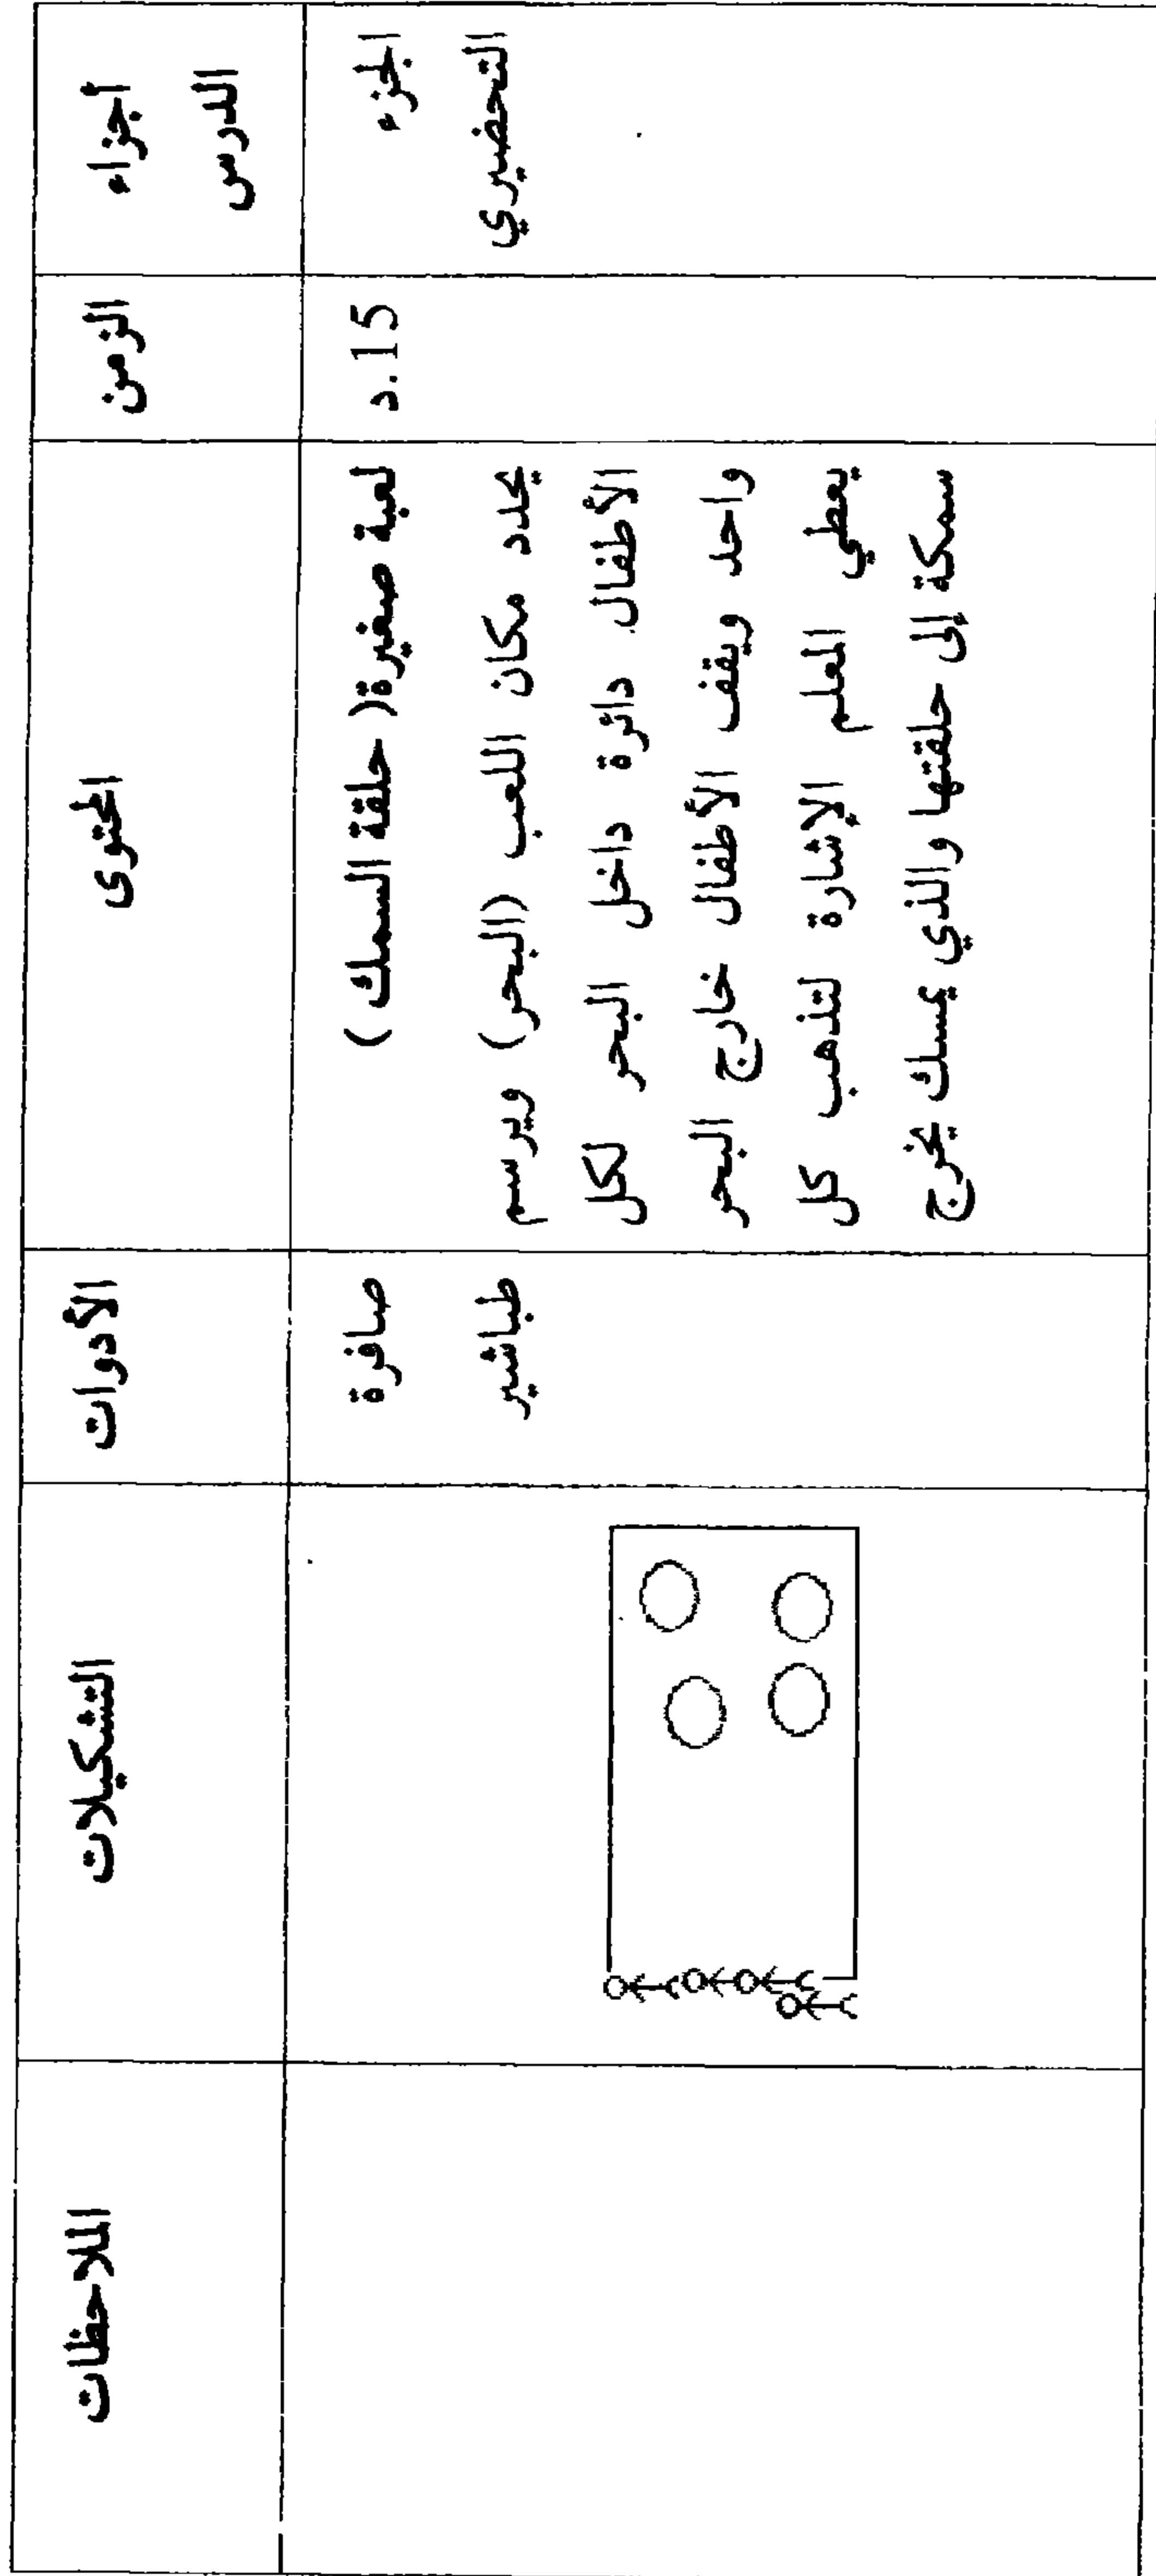 أجزاء
الدرس
الزمن
المحتوى
الأدوات
التشكيلات
الملاحظات
الجزء
التحضيري
15.د
لعبة صغيرة( حلقة السمك )
يحدد مكان اللعب (البحر) ويرسم
الأطفال. دائرة داخل البحر لكل
واحد ويقف الأطفال خارج البحر
يعطي المعلم الإشارة لتذهب كل
سمكة إلى حلقتها والذي يمسك يخرج
صافرة
طباشير